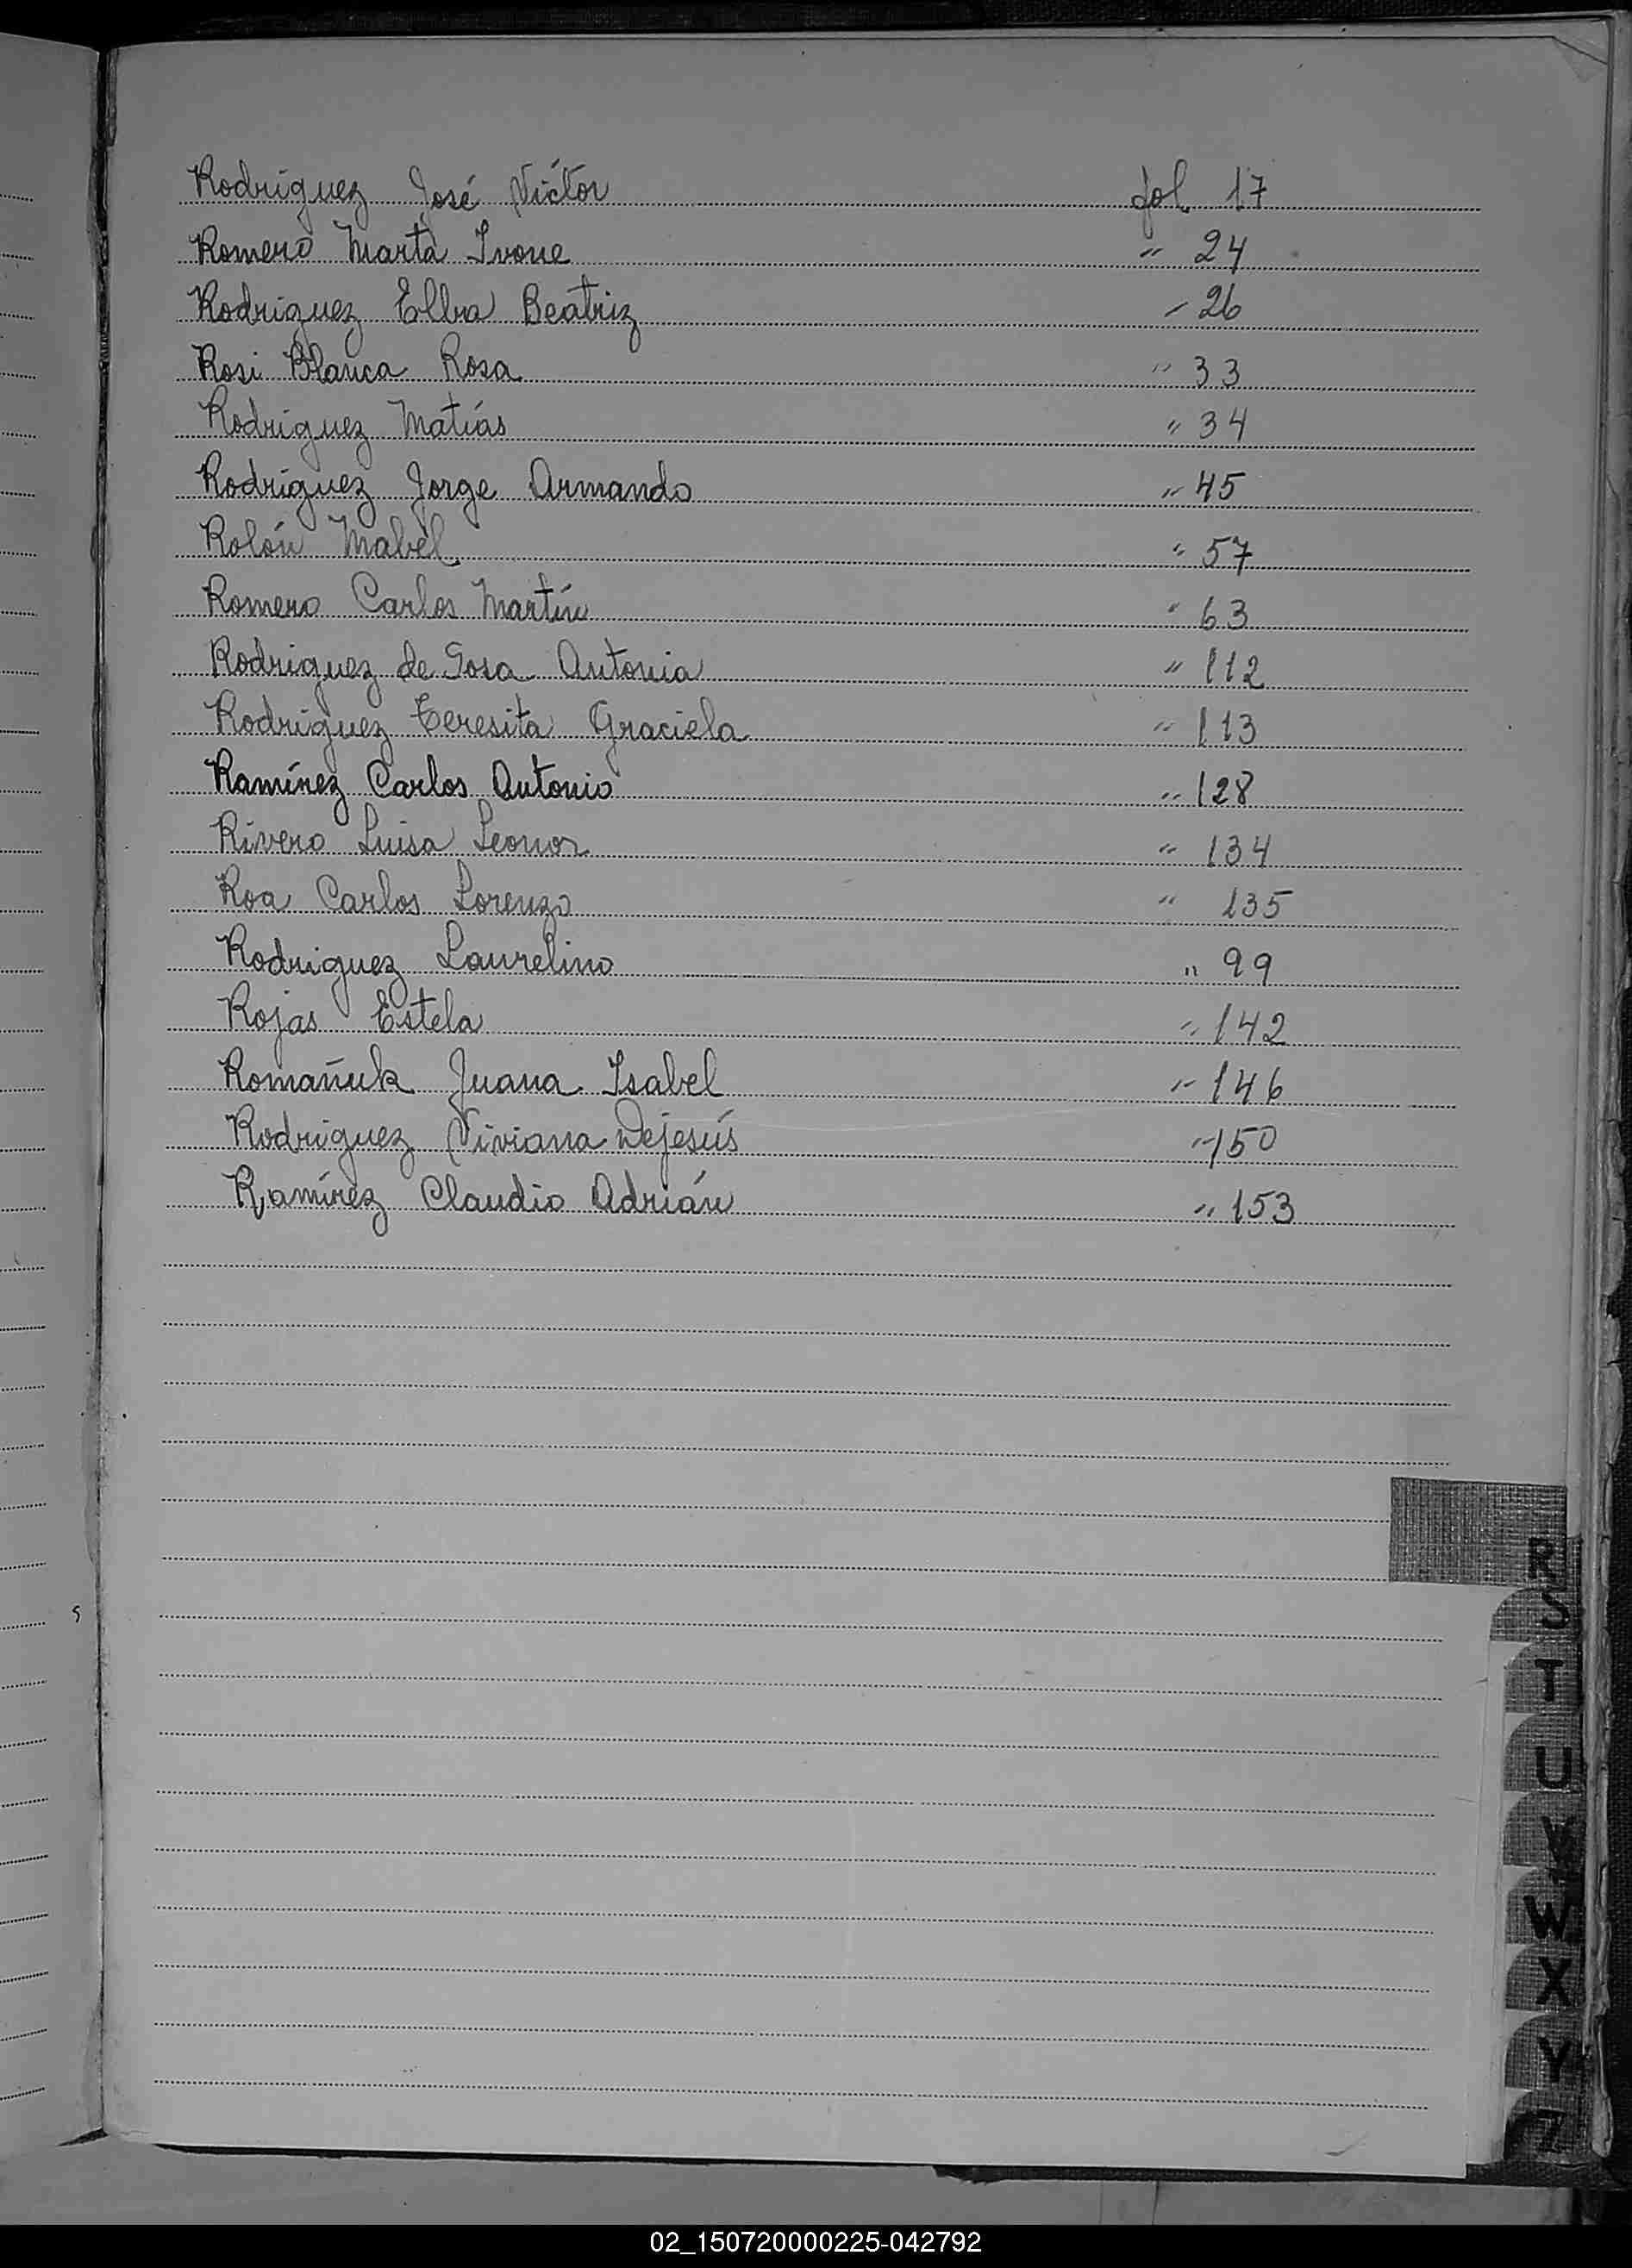 Rodriguez José Víctor fol. 17
Romero Marta Ivone " 24
Rodriguez Elba Beatriz " 26
Rosi Blanca Rosa " 33
Rodriguez Matías " 34
Rodriguez Jorge Armando " 45
Rolón Mabel " 57
Romero Carlos Martín " 63
Rodriguez de Sosa Antonia " 112
Rodriguez Teresita Graciela " 113
Ramírez Carlos Antonio " 128
Rivero Luisa Leonor " 134
Roa Carlos Lorenzo " 135
Rodriguez Laurelino " 99
Rojas Estela " 142
Romañuk Juana Isabel " 146
Rodriguez Viviana Dejesús " 150
Ramírez Claudio Adrián " 153
R
S
T
U
V
W
X
Y
Z
02_150720000225-042792